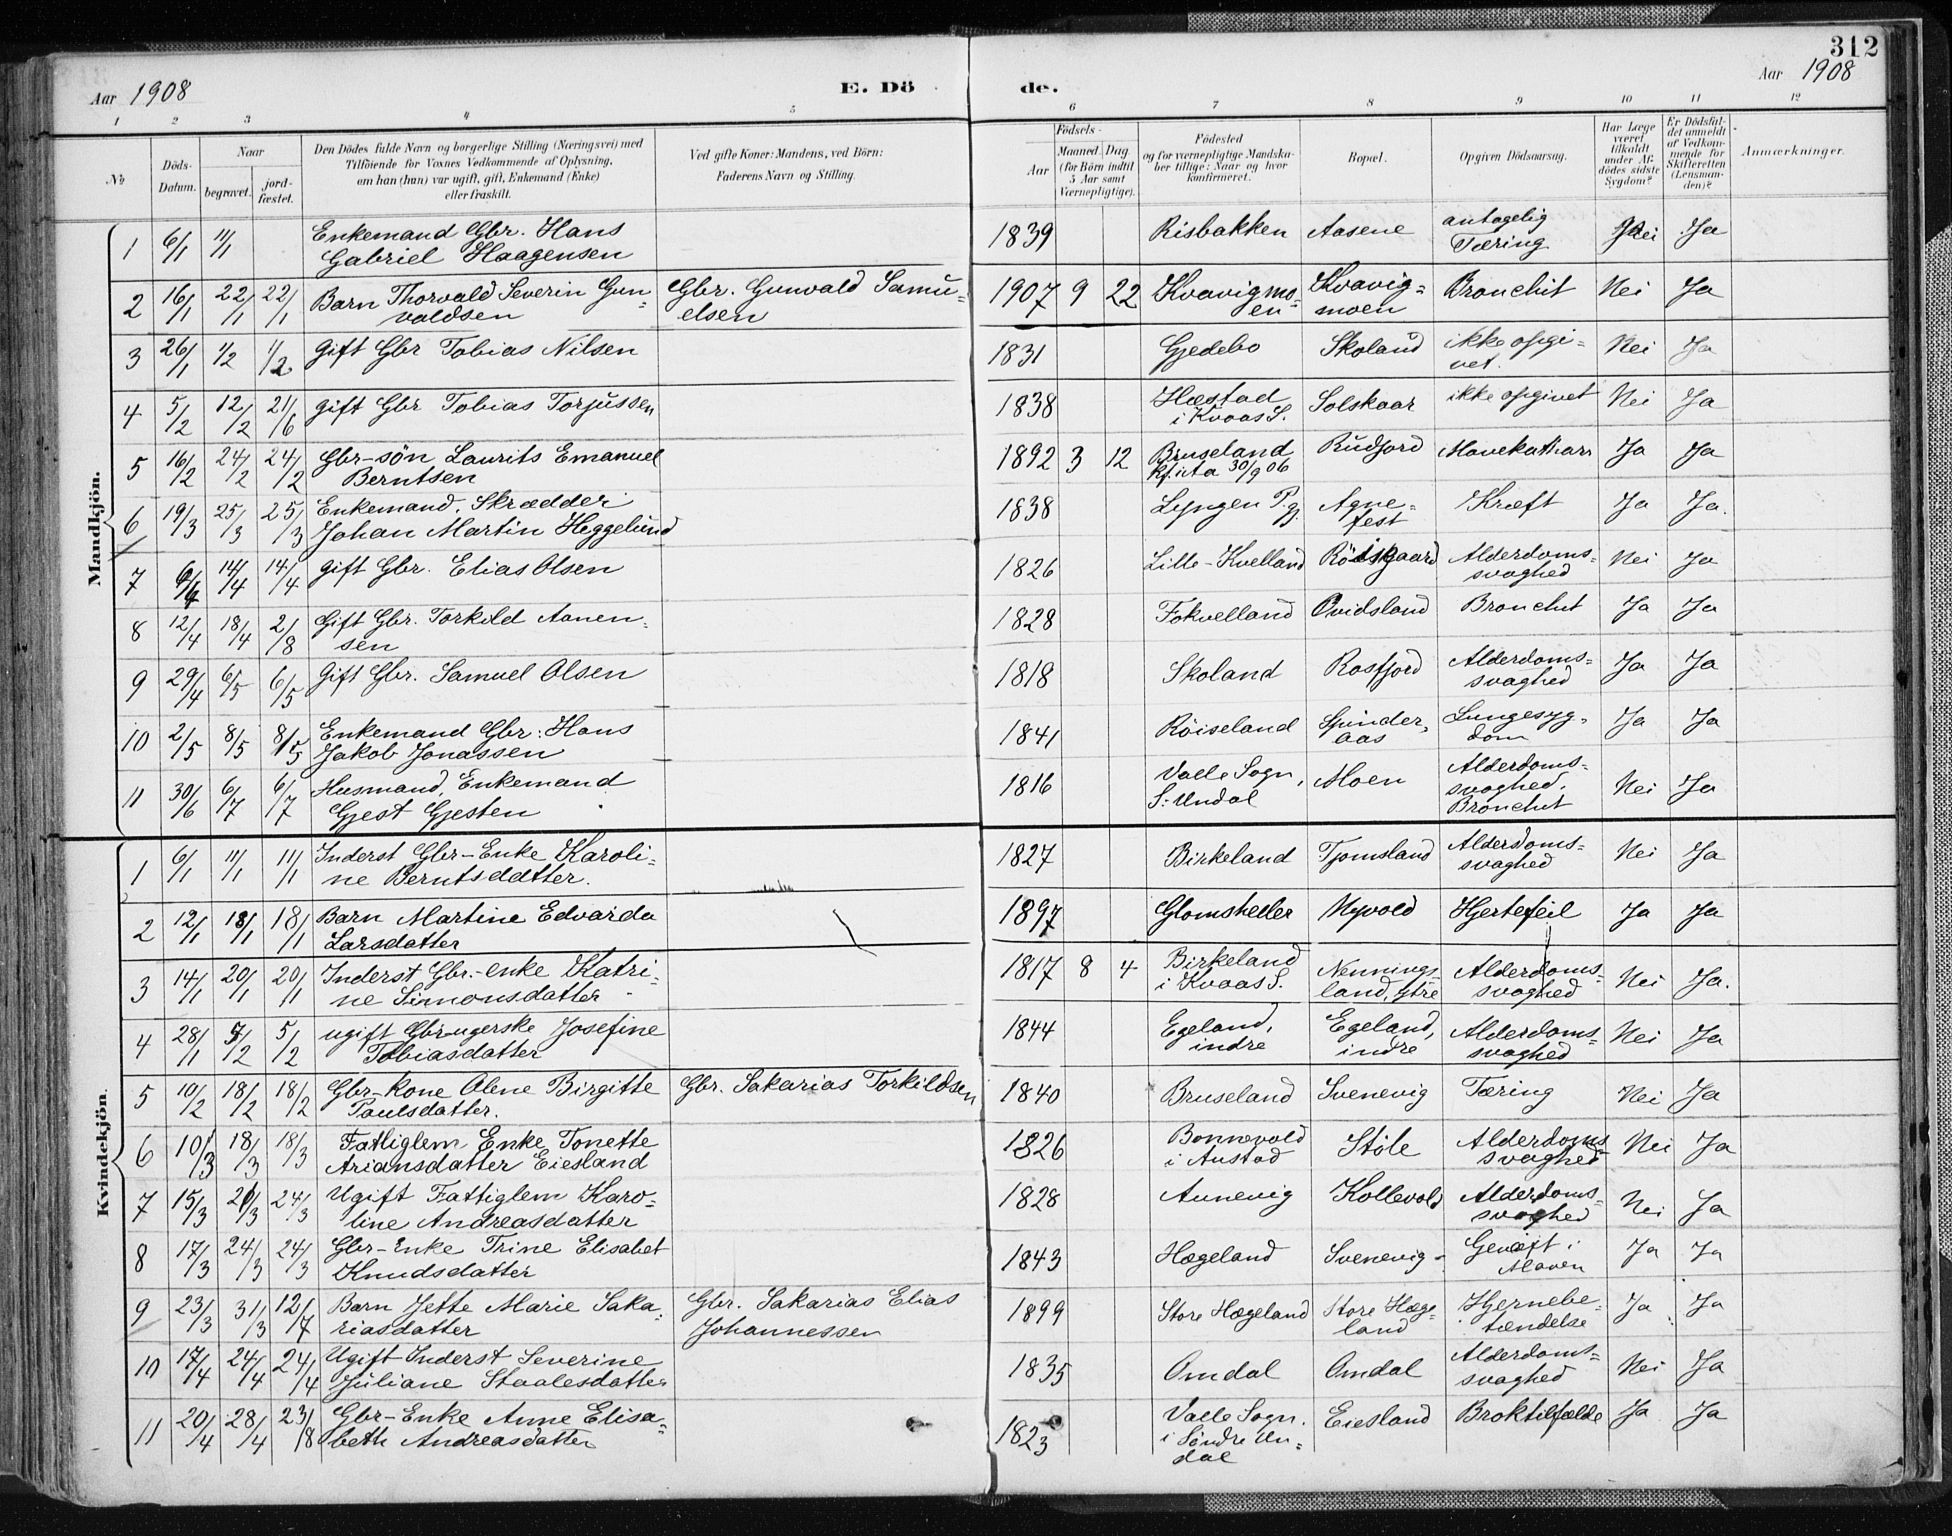 312
Aar 1908
E. Dö
de.
Aar 1908
1 2 3 4 5 6 7 8 9 10 11 12
No
Döds-Datum.
Naar
begravet.
jordfæstet.
Den Dödes fulde Navn og borgerlige Stilling (Næringsvei) med
Tilföiende for Voxnes Vedkommende af Oplysning,
om han (hun) var ugift, gift, Enkemand (Enke)
eller fraskilt.
Ved gifte Koner: Mandens, ved Börn:
Faderens Navn og Stilling.
Födsels-
Aar
Maaned.
Dag
(for Börn indtil
5 Aar samt
Værnepligtige).
Födested
og for værnepligtige Mandska-
ber tillige: Naar og hvor
konfirmeret.
Bopæl.
Opgiven Dödsaarsag.
Har Læge
været
tilkaldt
under Af-
dödes sidste
Sygdom?
Er Dödsfal-
det anmeldt
af Vedkom-
mende for
Skifteretten
(Lensman-
den)?
Anmærkninger.
Mandkjön.
1 6/1 11/1 Enkemand Gbr. Hans 1839 Risbakken Aasene antagelig Nei Ja
Gabriel Haagensen Tæring
2 16/1 22/1 22/1 Barn Thorvald Severin Gun- Gbr. Gunvald Samu- 1907 9 22 Kvavigmo- Kvavig- Bronchit Nei Ja
valdsen elsen en moen
3 26/1 1/2 1/2 Gift Gbr Tobias Nilsen 1831 Gjedebo Skoland ikke opgi- Nei Ja
vet.
4 5/2 12/2 21/6 gift Gbr Tobias Torjussen 1838 Hæstad Solskaar ikke opgivet Nei Ja
i Kvaas S.
5 16/2 24/2 24/2 Gbr-søn Laurits Emanuel 1892 3 12 Bruseland Rudjord Mavekatharr Ja Ja
Berntsen 30/9 06
6 19/3 25/3 25/3 Enkemand, Skrædder 1838 Lyngen Pg. Agne- Kræft Ja Ja.
Johan Martin Heggelund fest
7 6/4 14/4 14/4 gift Gbr. Elias Olsen 1826 Lille-Kvelland Alderdoms- Nei Ja
svaghed
8 12/4 18/4 2/8 Gift Gbr. Torkild Aanen- 1828 Fokvelland Qvidsland Bronchit Ja Ja
sen
9 29/4 6/5 6/5 Gift Gbr. Samuel Olsen 1818 Skoland Rosfjord Alderdoms- Ja Ja
svaghed
10 2/5 8/5 8/5 Enkemand Gbr: Hans 1841 Röiseland Spinder- Lungesyg- Ja Ja
Jakob Jonassen aas dom
11 30/6 6/7 6/7 Husmand, Enkemand 1816 Valle Sogn, Moen Alderdoms- Nei Ja
Gjest Gjesten S. Undal svaghed.
Bronchit
Kvindekjön.
1 6/1 11/1 11/1 Inderst Gbr-Enke Karoli- 1827 Birkeland Tjomsland Alderdoms- Nei Ja
ne Berntsdatter. svaghed
2 12/1 18/1 18/1 Barn Martine Edvarda 1897 Glomsheller Nyvold Hjertefeil Ja Ja
Larsdatter
3 14/1 20/1 20/1 Inderst Gbr.-enke Katri- 1817 8 4 Birkeland Nennings- Alderdoms- Nei Ja.
ne Simonsdatter i Kvaas S. land, Ytre svaghed
4 28/1 5/2 5/2 ugift Gbrugerske Josefine 1844 Egeland, Egeland, Alderdoms- Nei Ja
Tobiasdatter indre indre svaghed
5 10/2 18/2 18/2 Gbr-kone Olene Birgitte Gbr. Sakarias Torkildsen 1840 Bruseland Svenevig Tæring Nei Ja
Paulsdatter.
6 10/3 18/3 18/3 Fattiglem Enke Tonette 1826 Bonnevold Støle Alderdoms Nei Ja
Ariansdatter Eiesland i Austad svaghed
7 15/3 24/3 24/3 Ugift Fattiglem Karo- 1828 Aunevig Kollevold Alderdoms- Nei Ja
line Andreasdatter svaghed
8 17/3 24/3 24/3 Gbr-Enke Trine Elisabet 1843 Hægeland Svenevig Ja Ja
Knudsdatter Maven
9 23/3 31/3 12/7 Barn Jette Marie Saka- Gbr. Sakarias Elias 1899 Store Hægeland Store Hæge- Hjernebe- Ja Ja
riasdatter Johannessen land tændelse
10 17/4 24/4 24/4 Ugift Inderst Severine 1835 Omdal Omdal Alderdoms- Nei Ja
Juliane Staalesdatter svaghed
11 20/4 28/4 23/8 Gbr-Enke Anne Elisa- 1823 Valle Sogn. Eiesland Broktilfælde Ja Ja
beth Andreasdatter i Søndre Un-
dal